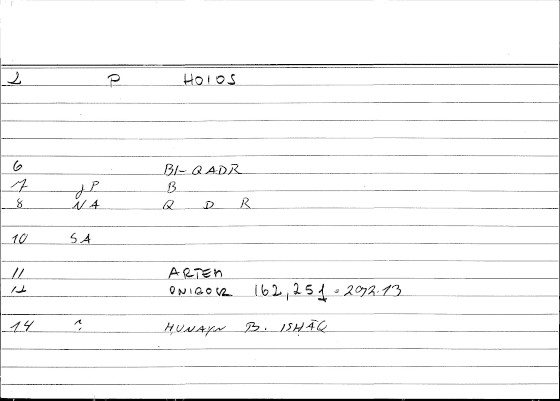 2 P HOIOS
6 BI-QADR
7 JP B
8 NA Q D R
10 SA
11 ARTEM
12 162,251=292.13
14 ? HUNAYN B. ISHĀQ